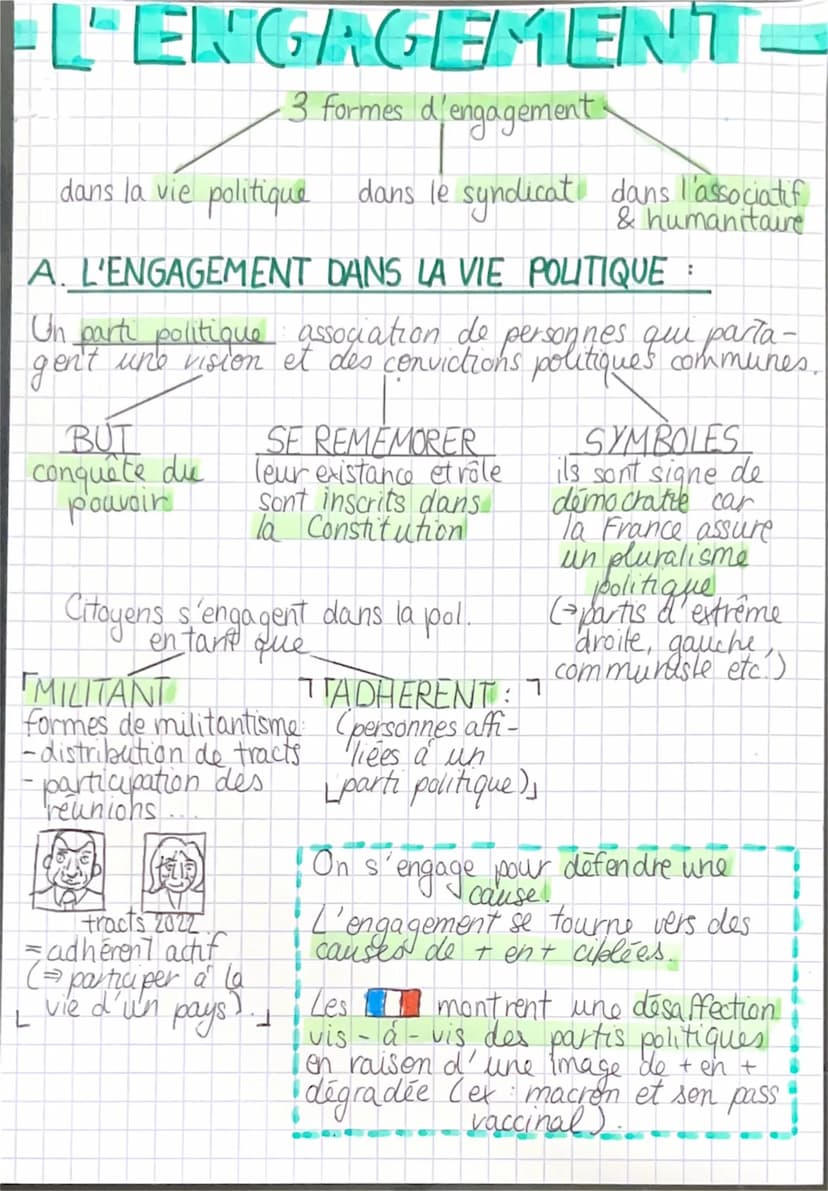 L'ENGAGEMENT
3 formes d'engagement
dans la vie politique
dans le syndicat
dans l'associatif
& humanitaire
A. L'ENGAGEMENT DANS LA VIE POLITIQUE :
Un parti politique : association de personnes qui parta-
gent une vision et des convictions politiques communes.
BUT
conquête du
pouvoir
SE REMÉMORER
leur existance et rôle
sont inscrits dans
la Constitution
SYMBOLES
ils sont signe de
démocratie car
la France assure
un pluralisme
politique
(→partis d'extrême
droite, gauche,
communiste etc.)
Citoyens s'engagent dans la pol.
en tant que
MILITANT
formes de militantisme:
- distribution de tracts
- participation des
réunions ...
tracts 2022
= adhérent actif
(⇒ participer à la
vie d'un pays).
ADHÉRENT :
(personnes affi-
liées à un
parti politique)
On s'engage pour défendre une
cause.
L'engagement se tourne vers des
causes de + en + ciblées.
Les montrent une désaffection
vis-à-vis des partis politiques
en raison d'une image de + en +
dégradée (ex : macron et son pass
vaccinal).